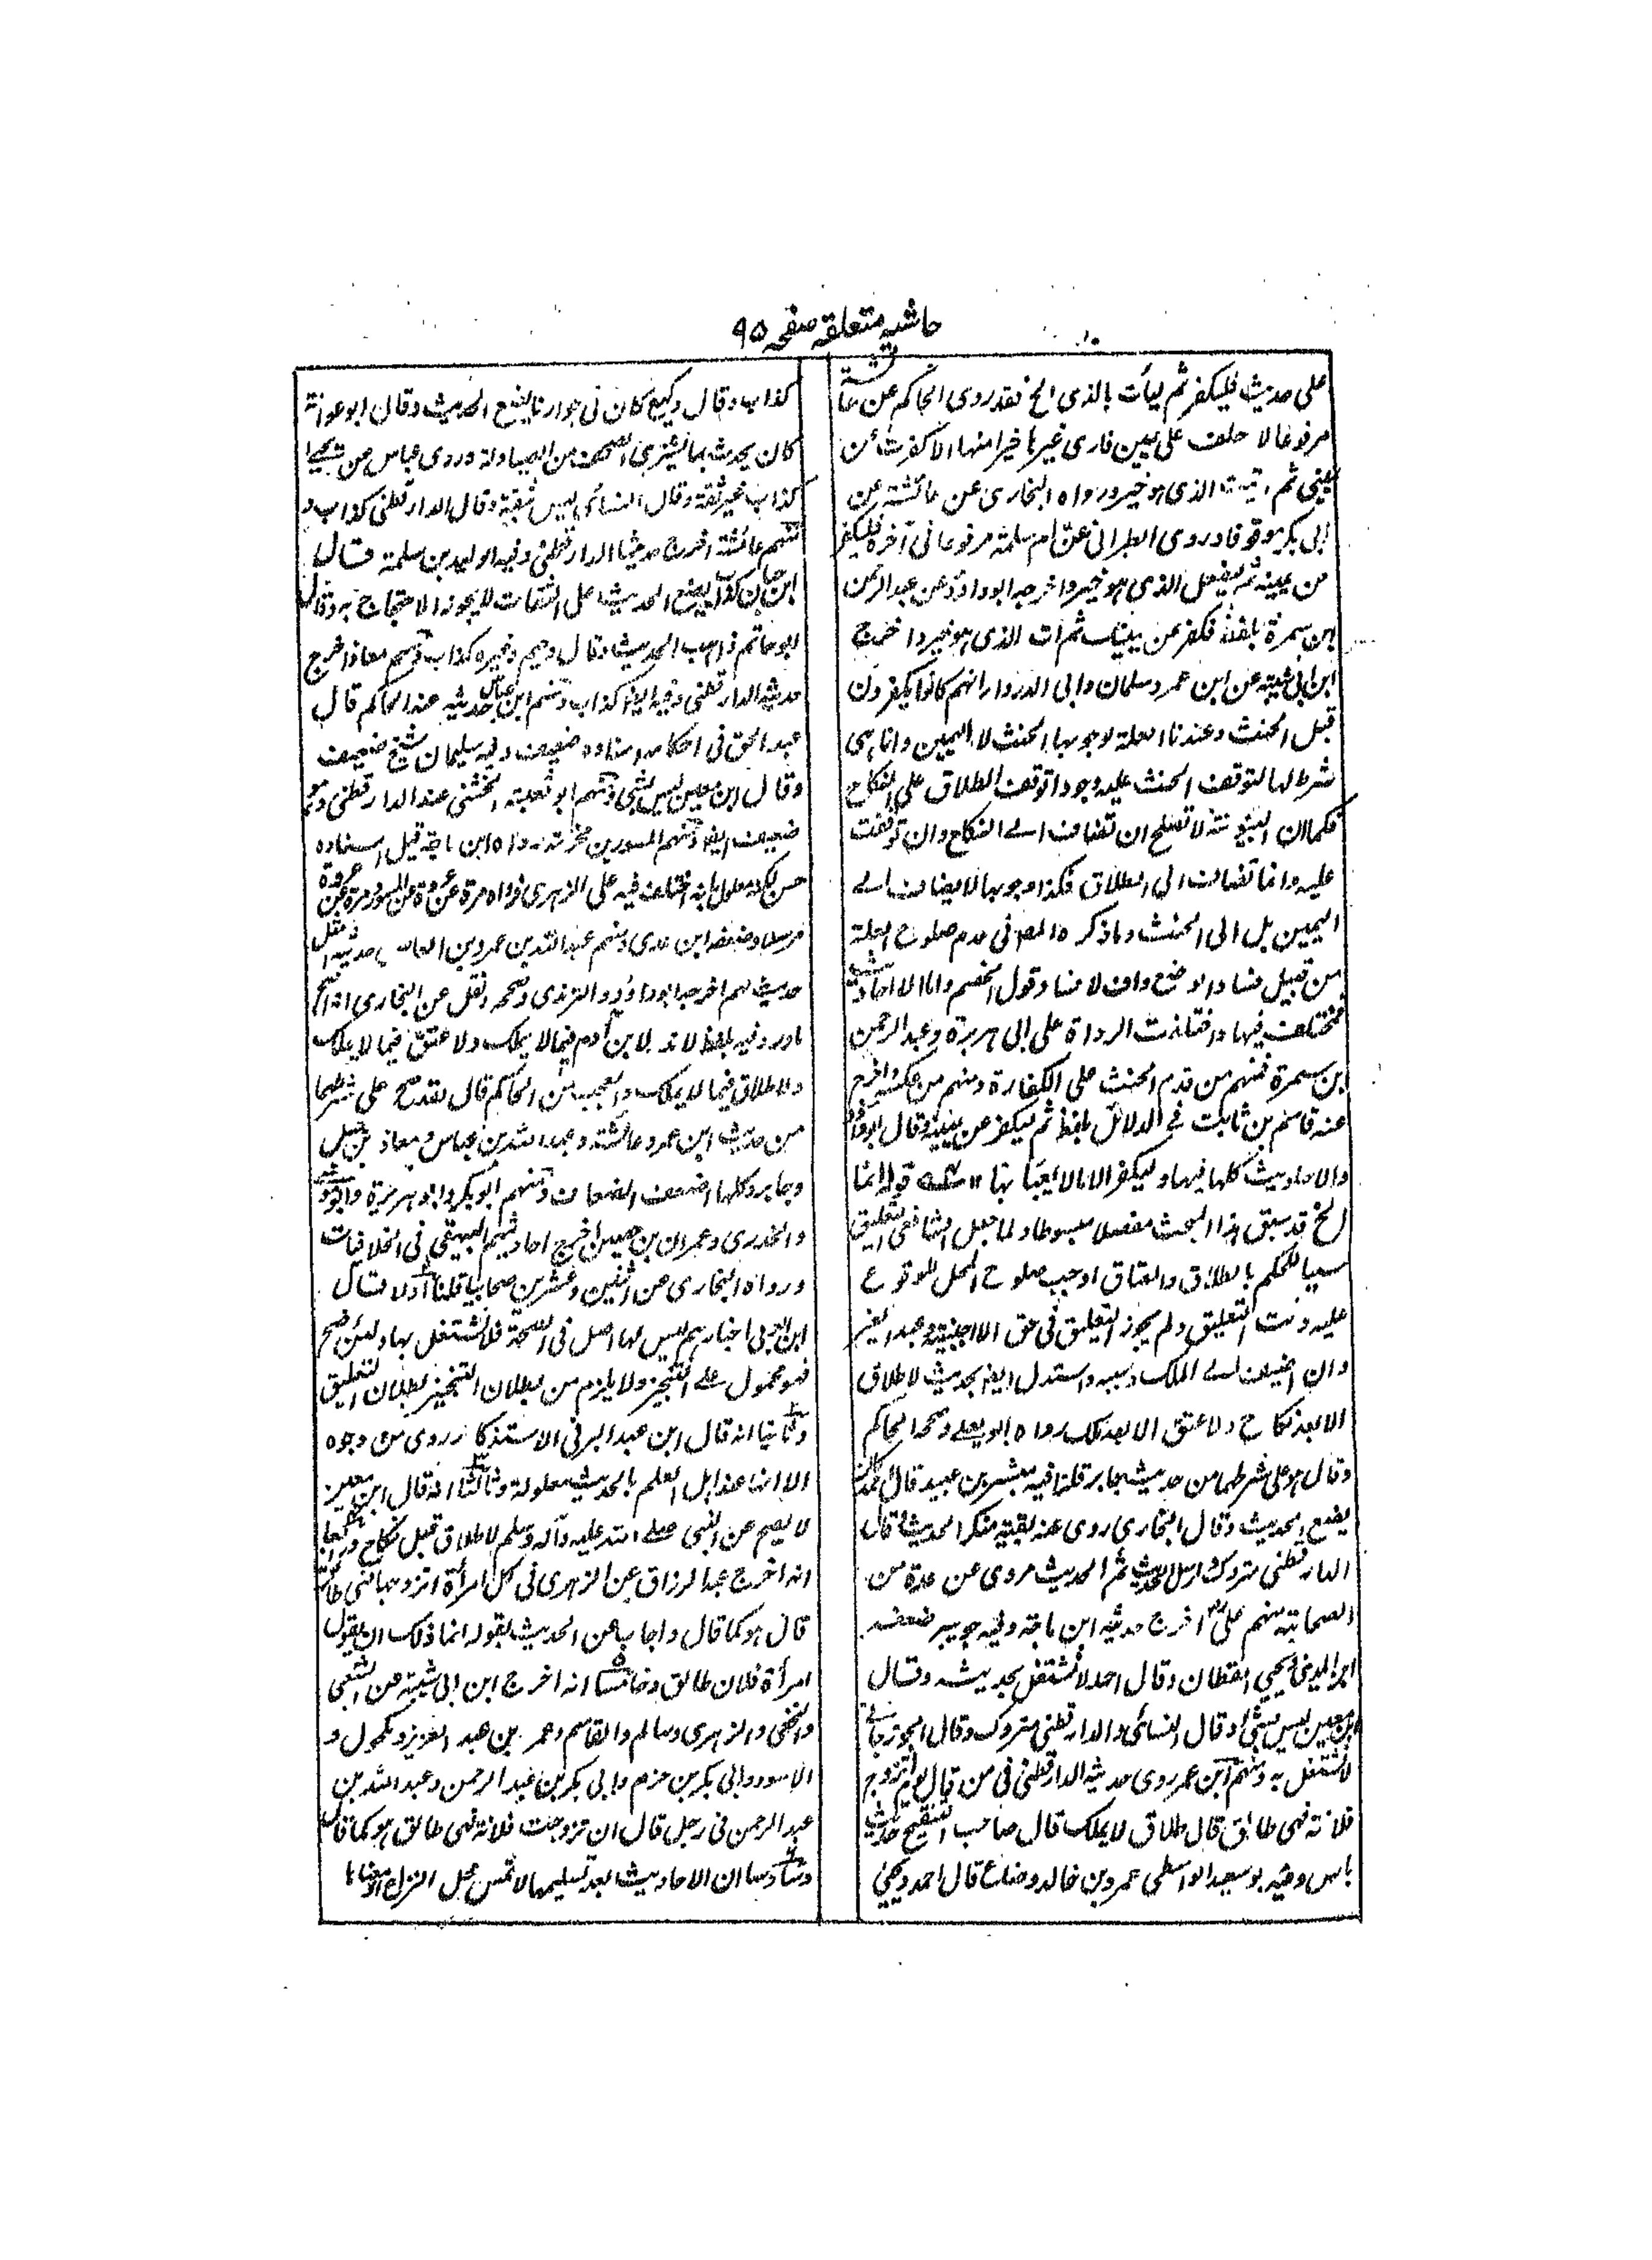 حاشیہ متعلقہ صفحہ ٩٥
على حديث فليكفر ثم ليأت بالذى الخ فقد روى الحاكم عن عائشة
مرفوعا لا حلف على يمين فارى غيرها خيرا منها الا كفرت عن
يمينى ثم اتيت الذى هو خير ورواه البخارى عن عائشة عن
ابى بكر موقوفا وروى الطبرانى عن ام سلمة مرفوعا فى آخره فليكفر
عن يمينه ثم ليفعل الذى هو خير واخرجه ابو داؤد عن عبد الرحمن
بن سمرة بلفظ فكفر عن يمينك ثم ات الذى هو خير واخرج
ابن ابى شيبة عن ابن عمر وسلمان وابى الدرداء انهم كانوا يكفرون
قبل الحنث وعندنا العلة لوجوبها الحنث لا اليمين وانما هى
شرط لها لتوقف الحنث عليه وجودا توقف الطلاق على النكاح
فكما ان البينونة لا تصلح ان تضاف الى النكاح وان توقفت
عليه وانما تضاف الى الطلاق فكذا وجوبها لا يضاف الى
اليمين بل الى الحنث وما ذكره المصر فى عدم صلوح العلة
من قبيل فساد الوضع وان لا فساد قول الخصم واما الاحاديث
فمختلف فيها واختلفت الرواة على ابى هريرة وعبد الرحمن
بن سمرة فمنهم من قدم الحنث على الكفارة ومنهم من عكس واخرج
عنه قاسم بن ثابت فى الدلائل بلفظ ثم ليكفر عن يمينه وقال ابو داؤد
والاحاديث كلها فيها وليكفر الا ما لا يعبأ بها ١٢ قوله انما
الخ قد سبق هذا البحث مفصلا مبسوطا ولما جعل الشافعى التعليق
سببا للحكم بالطلاق والعتاق اوجب صلوح المحل للوقوع
عليه وقت التعليق ولم يجوز التعليق فى حق الاجنبية وعبد الغير
وان اضيف الى الملك وسببه واستدل ايضا بحديث لا طلاق
الا بعد نكاح ولا عتق الا بعد ملك رواه ابو يعلى وصححه الحاكم
وقال هو على شرطهما من حديث جابر قلنا فيه مبشر بن عبيد قال احمد كان
يضع الحديث وقال البخارى روى عنه بقية منكر الحديث وقال
الدارقطنى متروك الحديث ثم الحديث مروى عن عدة من
الصحابة منهم على اخرج حديثه ابن ماجة وفيه جويبر ضعفه
ابن المدينى ويحيى القطان وقال احمد لا يشتغل بحديثه وقال
ابن معين ليس بشئ وقال النسائى والدارقطنى متروك وقال الجوزجانى
لا يشتغل به ومنهم ابن عمر روى حديثه الدارقطنى فى من قال يوم اتزوج
فلانة فهى طالق قال طلاق لا يملك قال صاحب التنقيح حديث
باطل وفيه ابو سعيد الواسطى عمرو بن خالد وضاع قال احمد ويحيى
كذاب وقال وكيع كان فى جوارنا يضع الحديث وقال ابو عوانة
كان يحدث بما يشترى الصحف من الصيادلة وروى عباس عن يحيى
كذاب غير ثقة وقال النسائى ليس بثقة وقال الدارقطنى كذاب و
منهم عائشة اخرج حديثها الدارقطنى وفيه الوليد بن سلمة قال
ابن حبان كذاب يضع الحديث على الثقات لا يجوز الاحتجاج به وقال
ابو حاتم ذاهب الحديث وقال دحيم وغيره كذاب ومنهم معاذ اخرج
حديثه الدارقطنى وفيه ايضا كذاب ومنهم ابن عباس حديثه عند الحاكم قال
عبد الحق فى احكامه اسناده ضعيف وفيه سليمان شيخ ضعيف
وقال ابن معين ليس بشئ ومنهم ابو ثعلبة الخشنى عند الدارقطنى وهو
ضعيف ايضا ومنهم المسور بن مخرمة رواه ابن ماجة قيل اسناده
حسن لكنه معلول بانه اختلف فيه على الزهرى فرواه مرة عن عروة عن المسور ومرة عن عروة
مرسلا وضعفه ابن عدى ومنهم عبد الله بن عمرو بن العاص حديثه امثل
حديث لهم اخرجه ابو داؤد والترمذى وصححه ونقل عن البخارى انه اصح
ما ورد فيه بلفظ لا نذر لابن آدم فيما لا يملك ولا عتق فيما لا يملك
ولا طلاق فيما لا يملك والعجب من الحاكم قال لقد صح على شرطهما
من حديث ابن عمر وعائشة وعبد الله بن عباس ومعاذ بن جبل
وجابر وكلها اضعف الضعاف ومنهم ابو بكر وابو هريرة
والخدرى وعمران بن حصين اخرج احاديثهم البيهقى فى الخلافيات
ورواه البخارى عن اثنين وعشرين صحابيا قلنا اولا قال
ابن العربى اخبارهم ليس لها اصل فى الصحة فلا يشتغل بها ولئن صح
فهو محمول على التنجيز ولا يلزم من بطلان التنجيز بطلان التعليق
وثانيا انه قال ابن عبد البر فى الاستذكار روى من وجوه
الا انها عند اهل العلم بالحديث معلولة وثالثا انه قال ابن معين
لا يصح عن النبى صلى الله عليه وآله وسلم لا طلاق قبل نكاح ورابعا
انه اخرج عبد الرزاق عن الزهرى فى كل امرأة اتزوجها فهى طالق
قال هو كما قال واجاب عن الحديث بقوله انما ذلك ان يقول
امرأة فلان طالق وخامسا انه اخرج ابن ابى شيبة عن الشعبى
والنخعى والزهرى وسالم والقاسم وعمر بن عبد العزيز ومكحول و
الاسود وابى بكر بن حزم وابى بكر بن عبد الرحمن وعبد الله بن
عبد الرحمن فى رجل قال ان تزوجت فلانة فهى طالق هو كما قال
وسادسا ان الاحاديث بعد تسليمها لا تمس محل النزاع